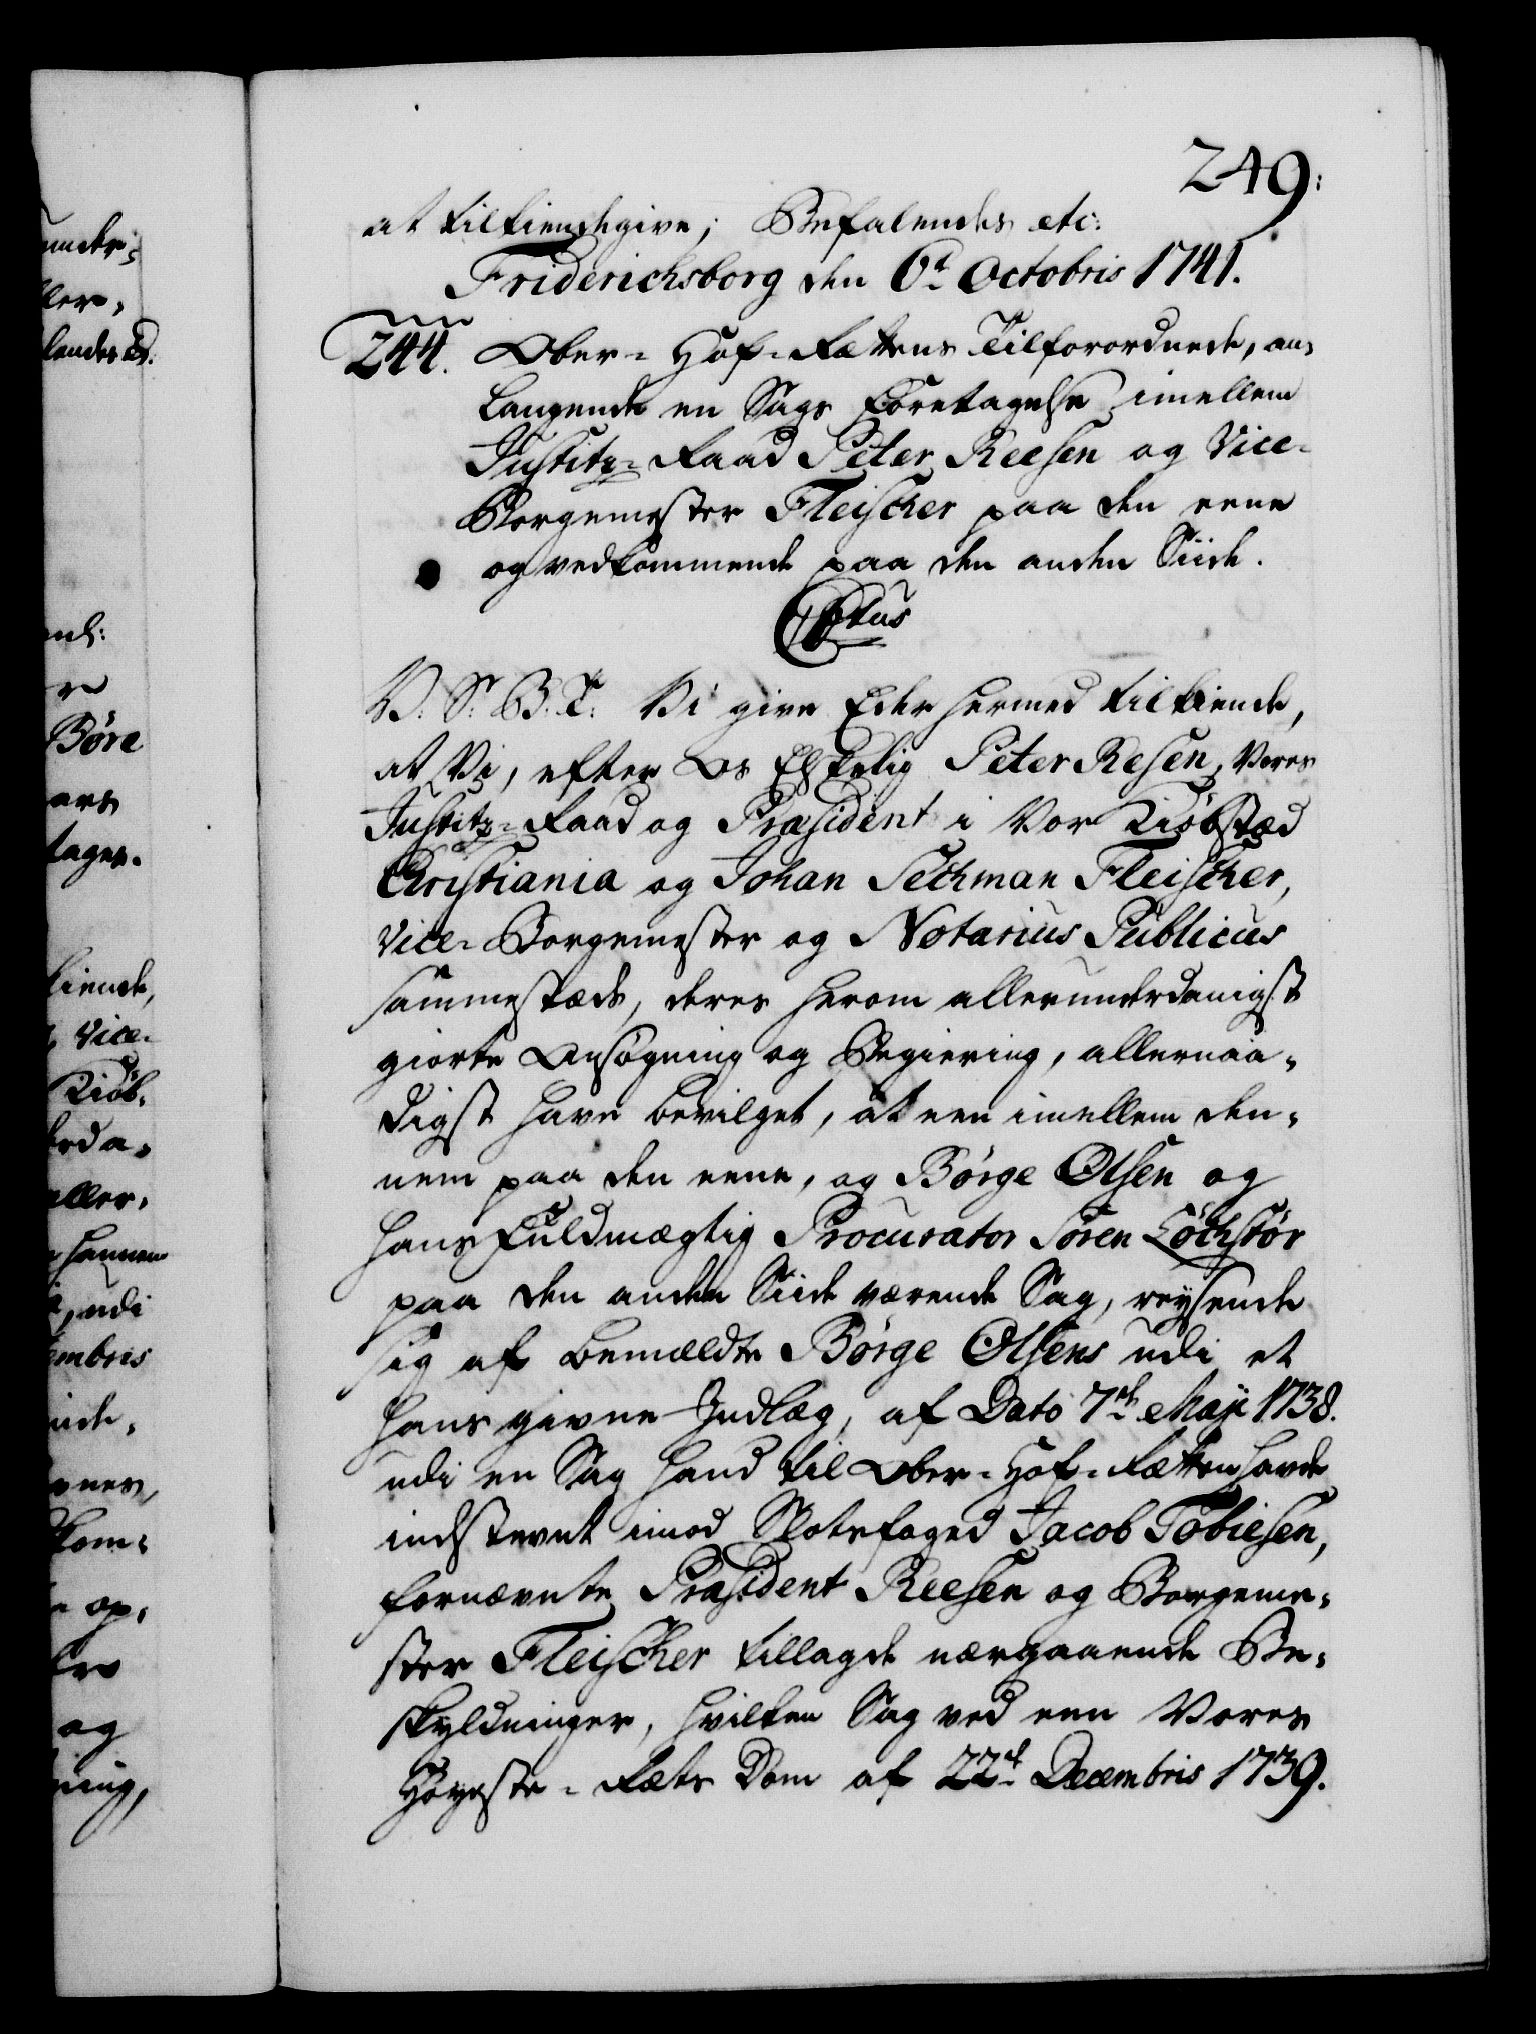 249.
at tilkiendegive; Befalendes etc:
Friderichsborg den 6t Octobris 1741.
244. Ober-Hof-Rettens Tilforordnede, an-
langende en Sags Foretagelse imellem
Justitz-Raad Peter Reesen og Vice-
Borgemester Fleischer paa den eene
og vedkommende paa den anden Siide.
V. S. B. T. Vi give Eder hermed tilkiende,
at Vi, efter Os Elskelig Peter Resen, Vores
Justitz-Raad og Præsident i Vor Kiøbstæd
Christiania og Johan Sechman Fleischer,
Vice-Borgemester og Notarius Publicus
sammestæds, deres herom allerunderdanigst
giorte Ansøgning og Begiering, allernaa-
digst have bevilget, at een imellem den-
nem paa den eene, og Børge Olsen og
hans Fuldmægtig Procurator Søren Løchstør
paa den anden Siide værende Sag, reysende
sig af bemældte Børge Olsens udi et
hans givne Indlæg, af Dato 7de Maji 1738.
udi en Sag hand til Ober-Hof-Retten havde
indstevnt imod Slotsfoged Jacob Tobiesen,
fornævnte Præsident Reesen og Borgeme-
ster Fleischer tillagde nærgaaende Be-
skyldninger, hvilken Sag ved een Vores
Høyeste-Rets Dom af 22d Decembris 1739.
under-
ller-
lendes etc.
Børe
ars
tages.
kiende,
Vice-
Kiøb-
erda-
aller-
hannem
udi
embris
kom-
op-
og
ning,